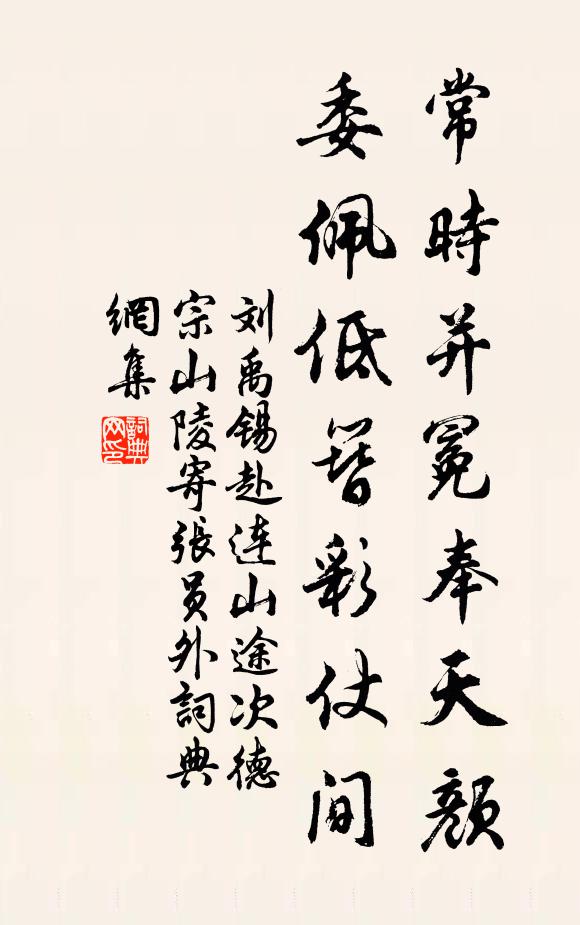 常時并冕奉天顏
委佩低簪彩仗間
刘禹锡赴连山途次德
宗山陵寄張员外詞典
網集
詞典
网印